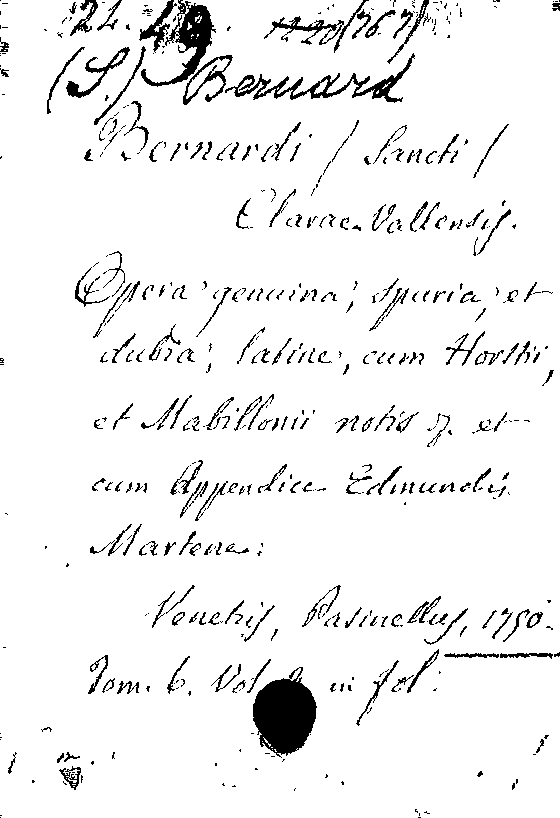 24. 49.
(S.) Bernard
Bernardi / Sancti /
Clarae-Vallensis.
Opera genuina, spuria, et
dubia, latine, cum Horstii,
et Mabillonii notis &. et
cum Appendice Edmundis
Martene:
Venetiis, Pasinellus, 1750.
Tom. 6. Vol in fol: